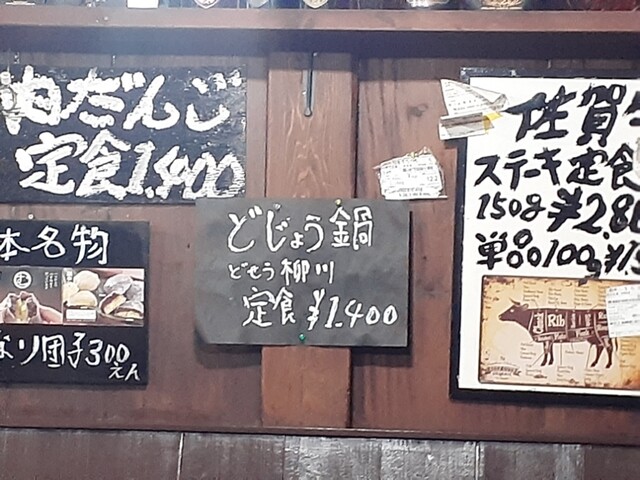 肉だんじ
定食1,400
本名物
り団子300
えん
どじょう鍋
どぜう柳川
定食¥1,400
佐賀牛
ステキ定食
150g¥2.8
単品100g¥1.
Rib